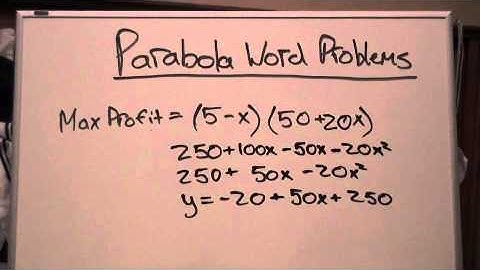 Parabola Word Problems
Max Profit = (5-x)(50+20x)
250+100x-50x-20x²
250+50x-20x²
y=-20+50x+250